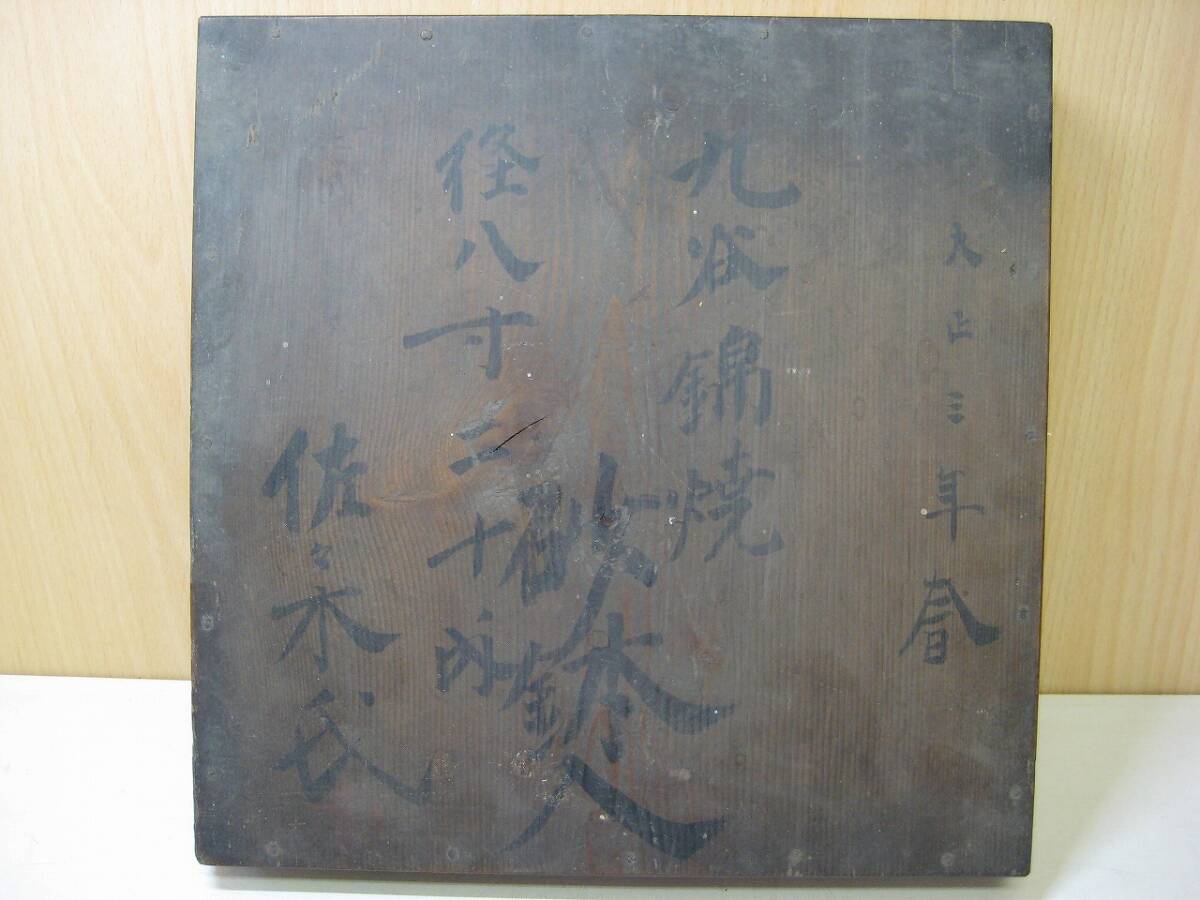 大正三年春
九谷錦焼
砂鉢入
径八寸二十内
佐々木氏